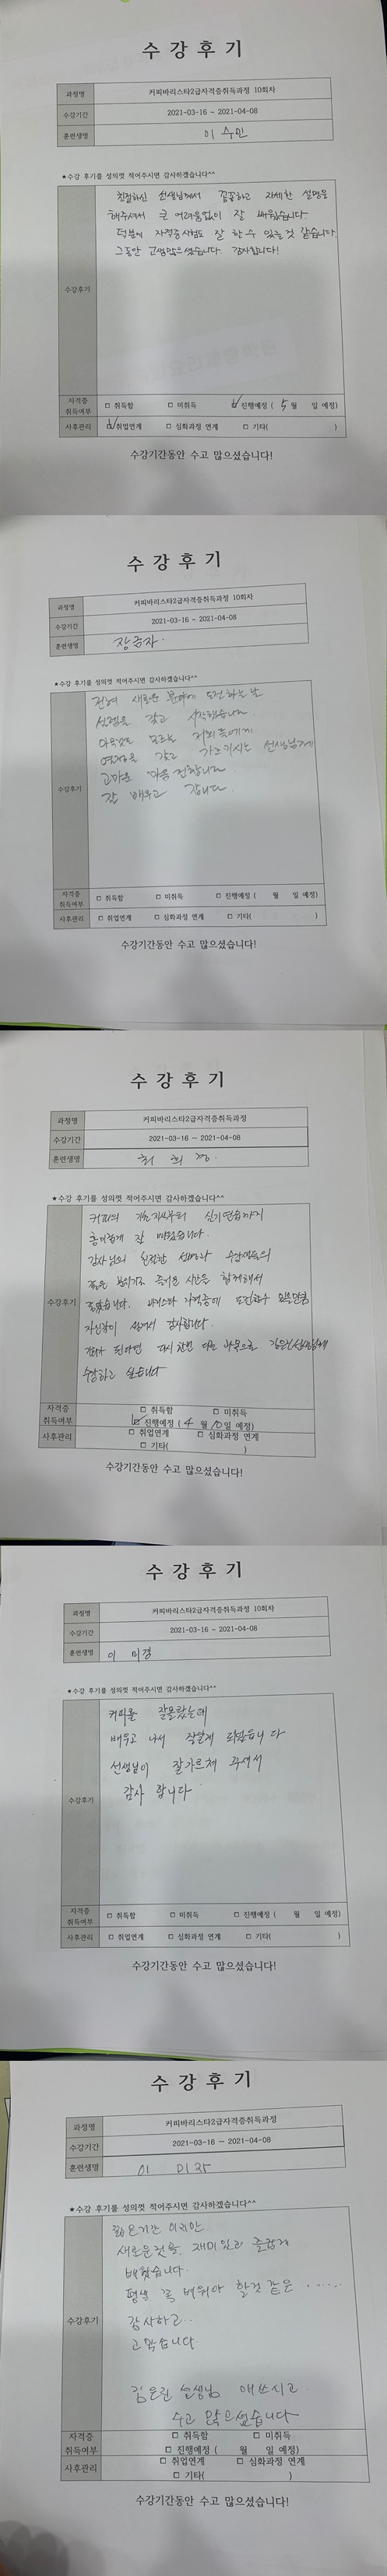 수강후기
과정명 커피바리스타2급자격증취득과정 10회차
수강기간 2021-03-16 ~ 2021-04-08
훈련생명 이수민
★수강 후기를 성의껏 적어주시면 감사하겠습니다^^
수강후기
친절하신 선생님께서 꼼꼼하고 자세한 설명을
해주셔서 큰 어려움없이 잘 배웠습니다
덕분에 자격증시험도 잘 할 수 있는것 같습니다.
그동안 고생많으셨습니다. 감사합니다!
자격증 취득여부 □ 취득함 □ 미취득 ☑ 진행예정 ( 5 월 일 예정)
사후관리 ☑ 취업연계 □ 심화과정 연계 □ 기타( )
수강기간동안 수고 많으셨습니다!
수강후기
과정명 커피바리스타2급자격증취득과정 10회차
수강기간 2021-03-16 ~ 2021-04-08
훈련생명
★수강 후기를 성의껏 적어주시면 감사하겠습니다^^
수강후기
전혀 새로운 분야에 도전하는 날
설렘을 갖고 시작했습니다.
아무것도 모르는 저희들에게
열정을 갖고 가르치시는 선생님께
고마운 마음 전합니다.
잘 배우고 갑니다.
자격증 취득여부 □ 취득함 □ 미취득 □ 진행예정 ( 월 일 예정)
사후관리 □ 취업연계 □ 심화과정 연계 □ 기타( )
수강기간동안 수고 많으셨습니다!
수강후기
과정명 커피바리스타2급자격증취득과정
수강기간 2021-03-16 ~ 2021-04-08
훈련생명 희정
★수강 후기를 성의껏 적어주시면 감사하겠습니다^^
수강후기
커피의 기초지식부터 실기연습까지
흥미롭게 잘 배웠습니다.
강사님의 친절한 설명과 수강생들의
좋은 분위기로 즐거운 시간을 함께해서
좋았습니다. 바리스타 자격증에 도전할수
자신감이 생겨서 감사합니다.
기회가 된다면 다시한번 다른 과목으로 김은진선생님께
수강하고 싶습니다
자격증 취득여부 □ 취득함 □ 미취득
☑ 진행예정 ( 4 월 10 일 예정)
사후관리 □ 취업연계 □ 심화과정 연계
□ 기타( )
수강기간동안 수고 많으셨습니다!
수강후기
과정명 커피바리스타2급자격증취득과정 10회차
수강기간 2021-03-16 ~ 2021-04-08
훈련생명 이 미경
★수강 후기를 성의껏 적어주시면 감사하겠습니다^^
수강후기
커피을 잘몰랐는데
배우고 나서 잘알게 되었습니다
선생님이 잘가르쳐 주셔서
감사 합니다
자격증 취득여부 □ 취득함 □ 미취득 □ 진행예정 ( 월 일 예정)
사후관리 □ 취업연계 □ 심화과정 연계 □ 기타( )
수강기간동안 수고 많으셨습니다!
수강후기
과정명 커피바리스타2급자격증취득과정
수강기간 2021-03-16 ~ 2021-04-08
훈련생명 이 미자
★수강 후기를 성의껏 적어주시면 감사하겠습니다^^
수강후기
짧은기간 이지만
새로운것을 재미있고 즐겁게
배웠습니다.
평생 꼭 배워야 할것 같은 ......
감사하고..
고맙습니다.
김은진 선생님 애쓰시고
수고 많으셨습니다
자격증 취득여부 □ 취득함 □ 미취득
□ 진행예정 ( 월 일 예정)
사후관리 □ 취업연계 □ 심화과정 연계
□ 기타( )
수강기간동안 수고 많으셨습니다!